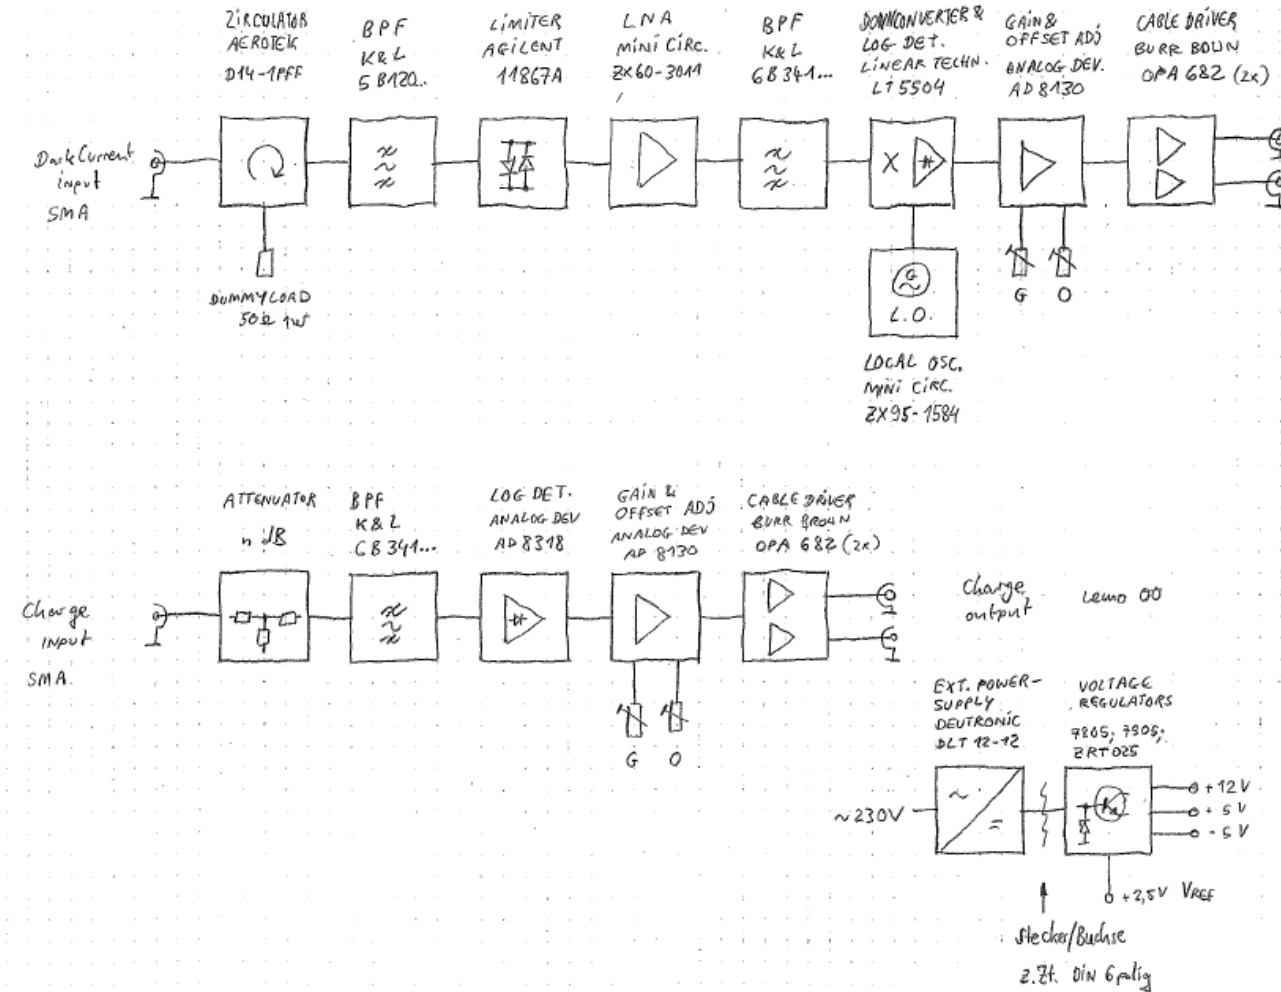 ZIRCULATOR
AEROTEK
D14-1PFF
BPF
K&L
5B120..
LIMITER
AGILENT
11867A
LNA
MINI CIRC.
ZX60-3011
BPF
K&L
6B341...
DOWNCONVERTER &
LOG DET.
LINEAR TECHN.
LT5504
GAIN &
OFFSET ADJ
ANALOG DEV.
AD8130
CABLE DRIVER
BURR BOWN
OPA 682 (2x)
Dark Current
input
SMA
X
G
L.O.
G
O
DUMMYLOAD
50Ω
LOCAL OSC.
MINI CIRC.
ZX95-1584
ATTENUATOR
n dB
BPF
K&L
6B341...
LOG DET.
ANALOG DEV
AD8318
GAIN &
OFFSET ADJ
ANALOG DEV
AD 8130
CABLE DRIVER
BURR BROWN
OPA 682 (2x)
Charge
input
SMA
G
O
Charge
output
Lemo 00
EXT. POWER-
SUPPLY
DEUTRONIC
DLT 12-12
VOLTAGE
REGULATORS
7805; 7905;
ZRT025
~230V
+12V
+5V
-5V
+2,5V VREF
Stecker/Buchse
z.Zt. DIN 6polig